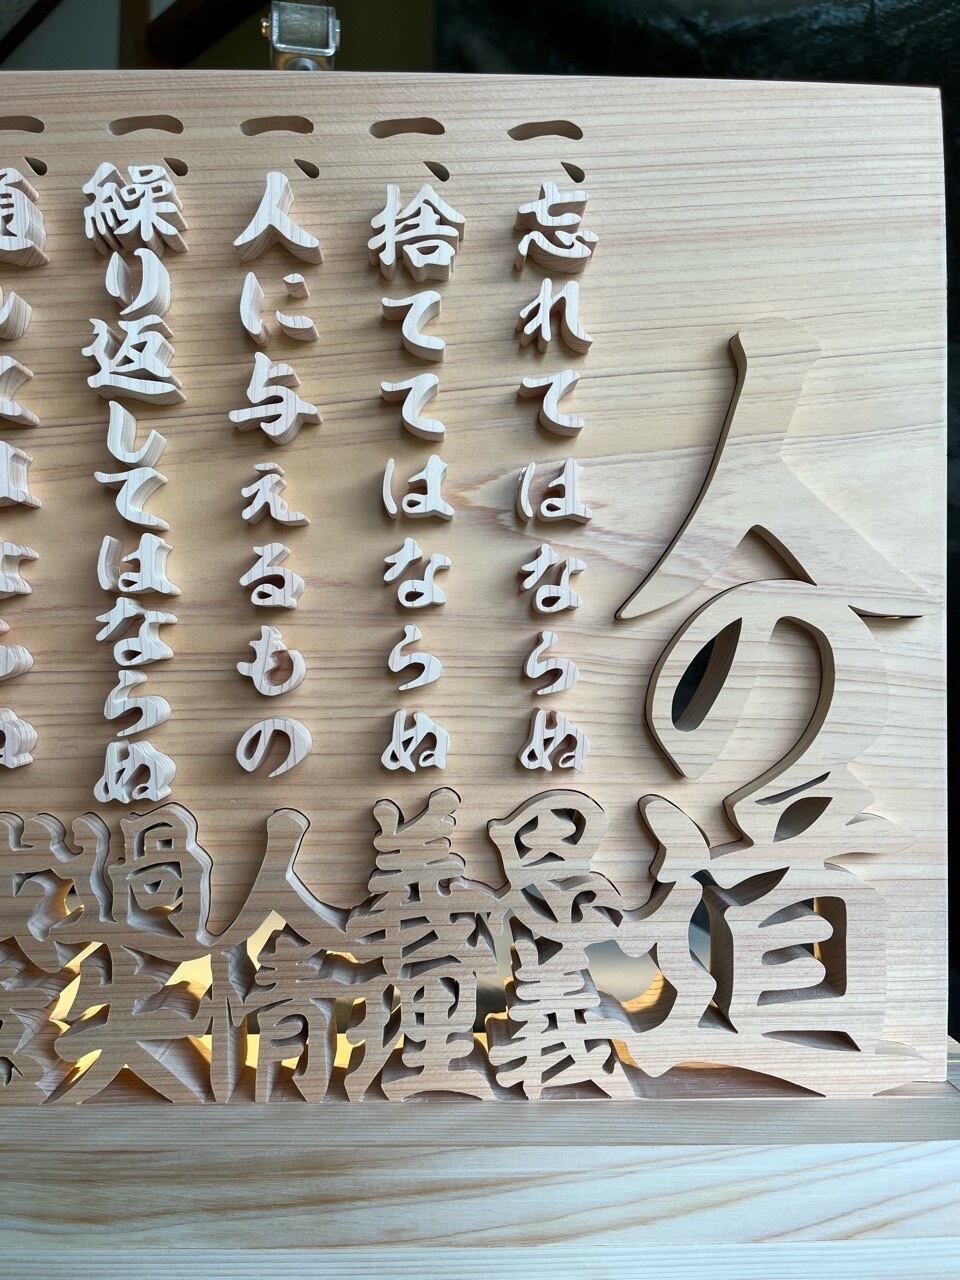 人の道
一、忘れてはならぬ恩義
一、捨ててはならぬ義理
一、人に与えるもの人情
一、繰り返してはならぬ過失
一、通し